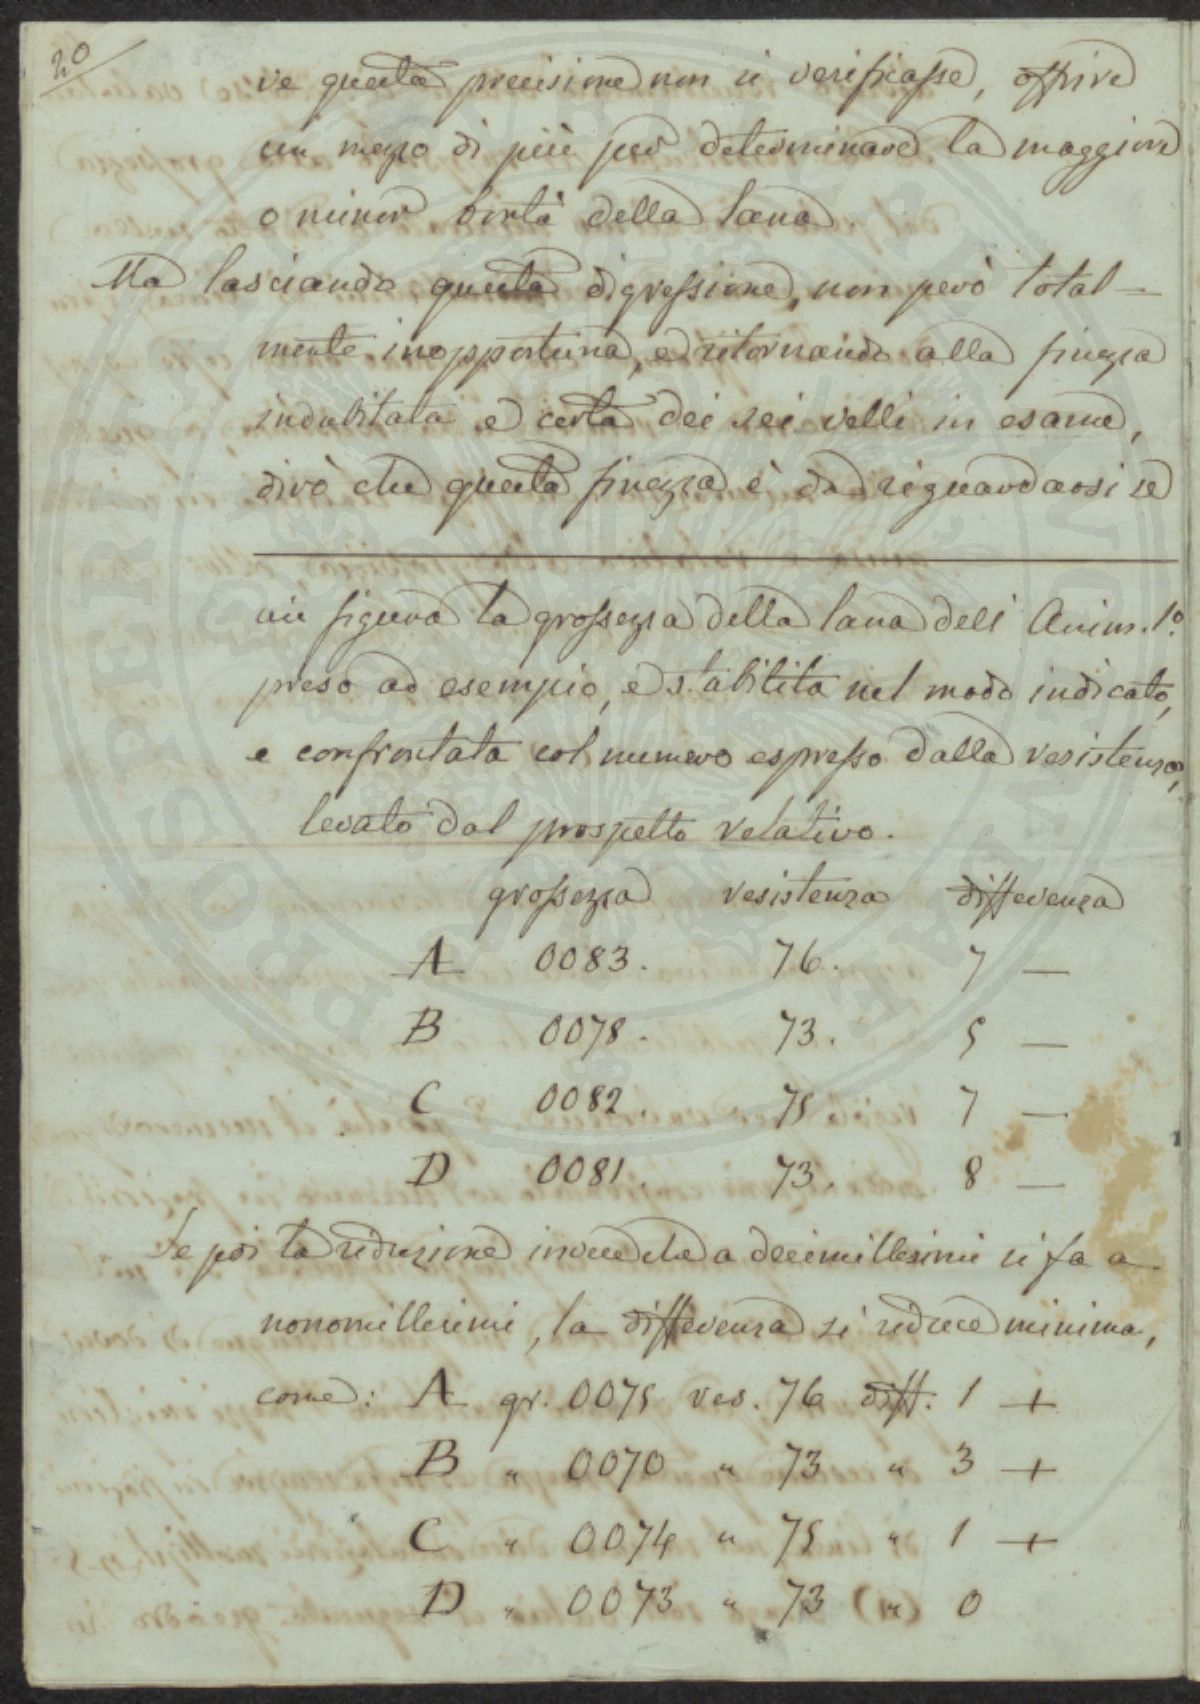 20
ve questa precisione non si verificasse, offrire
un mezzo di più per determinare la maggiore
o minor bontà della lana
Ma lasciando questa digressione, non però total-
mente inopportuna, e ritornando alla finezza
indubitata e certa dei sei velli in esame,
dirò che questa finezza è da riguardarsi se
cui figura la grossezza della lana dell' Anim. 1.º
preso ad esempio, e stabilita nel modo indicato,
e confrontata col numero espresso dalla resistenza,
levato dal prospetto relativo.
grossezza resistenza differenza
A 0083. 76. 7 —
B 0078. 73. 5 —
C 0082. 75 7 —
D 0081. 73. 8 —
Se poi la riduzione invece che a decimillesimi si fa a
nonomillesimi, la differenza si riduce minima,
come: A gr. 0075 res. 76 diff. 1 +
B " 0070 " 73 " 3 +
C " 0074 " 75 " 1 +
D " 0073 " 73 " 0